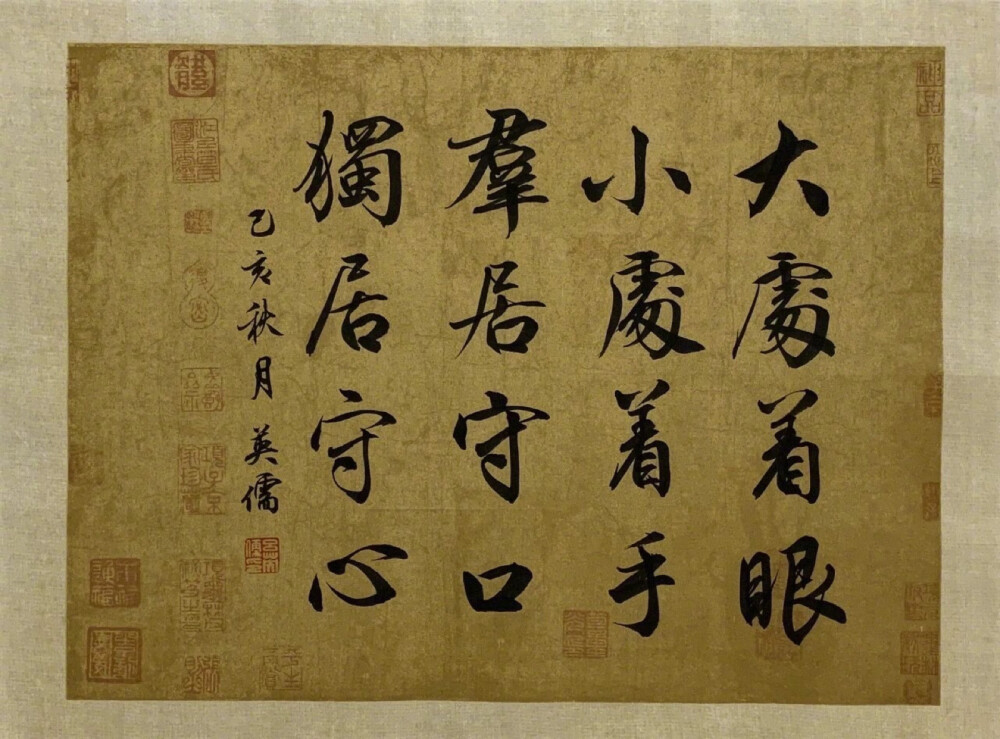 大處着眼
小處着手
羣居守口
獨居守心
乙亥秋月 英儒